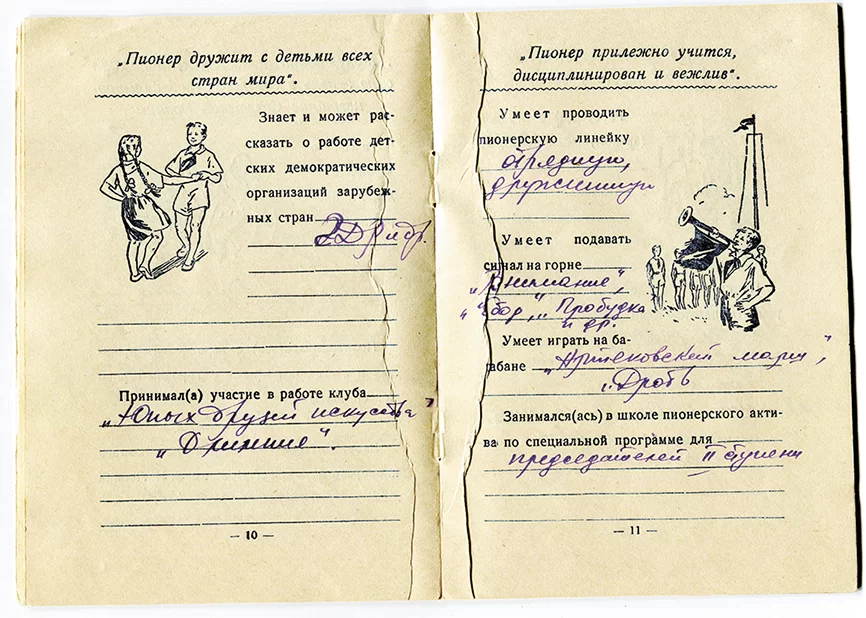 „Пионер дружит с детьми всех
стран мира“.
Знает и может рас-
сказать о работе дет-
ских демократических
организаций зарубеж-
ных стран
Принимал(а) участие в работе клуба
„Юных друзей искусства“
— 10 —
„Пионер прилежно учится,
дисциплинирован и вежлив“.
Умеет проводить
пионерскую линейку
отрядную,
дружинную
Умеет подавать
сигнал на горне
„Внимание“,
„Сбор“, „Пробудка
и др.
Умеет играть на ба-
рабане „Артековский марш“,
„Дробь
Занимался(ась) в школе пионерского акти-
ва по специальной программе для
председателей II ступени
— 11 —